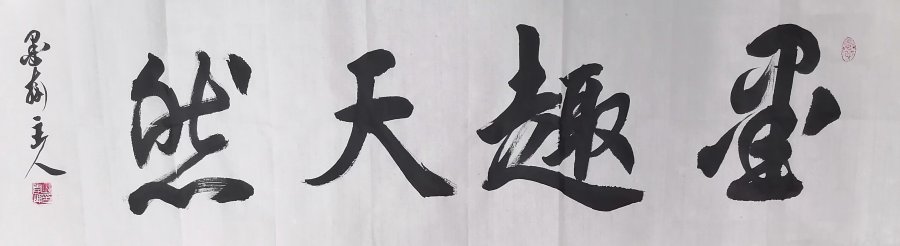 墨趣天然
墨梅主人